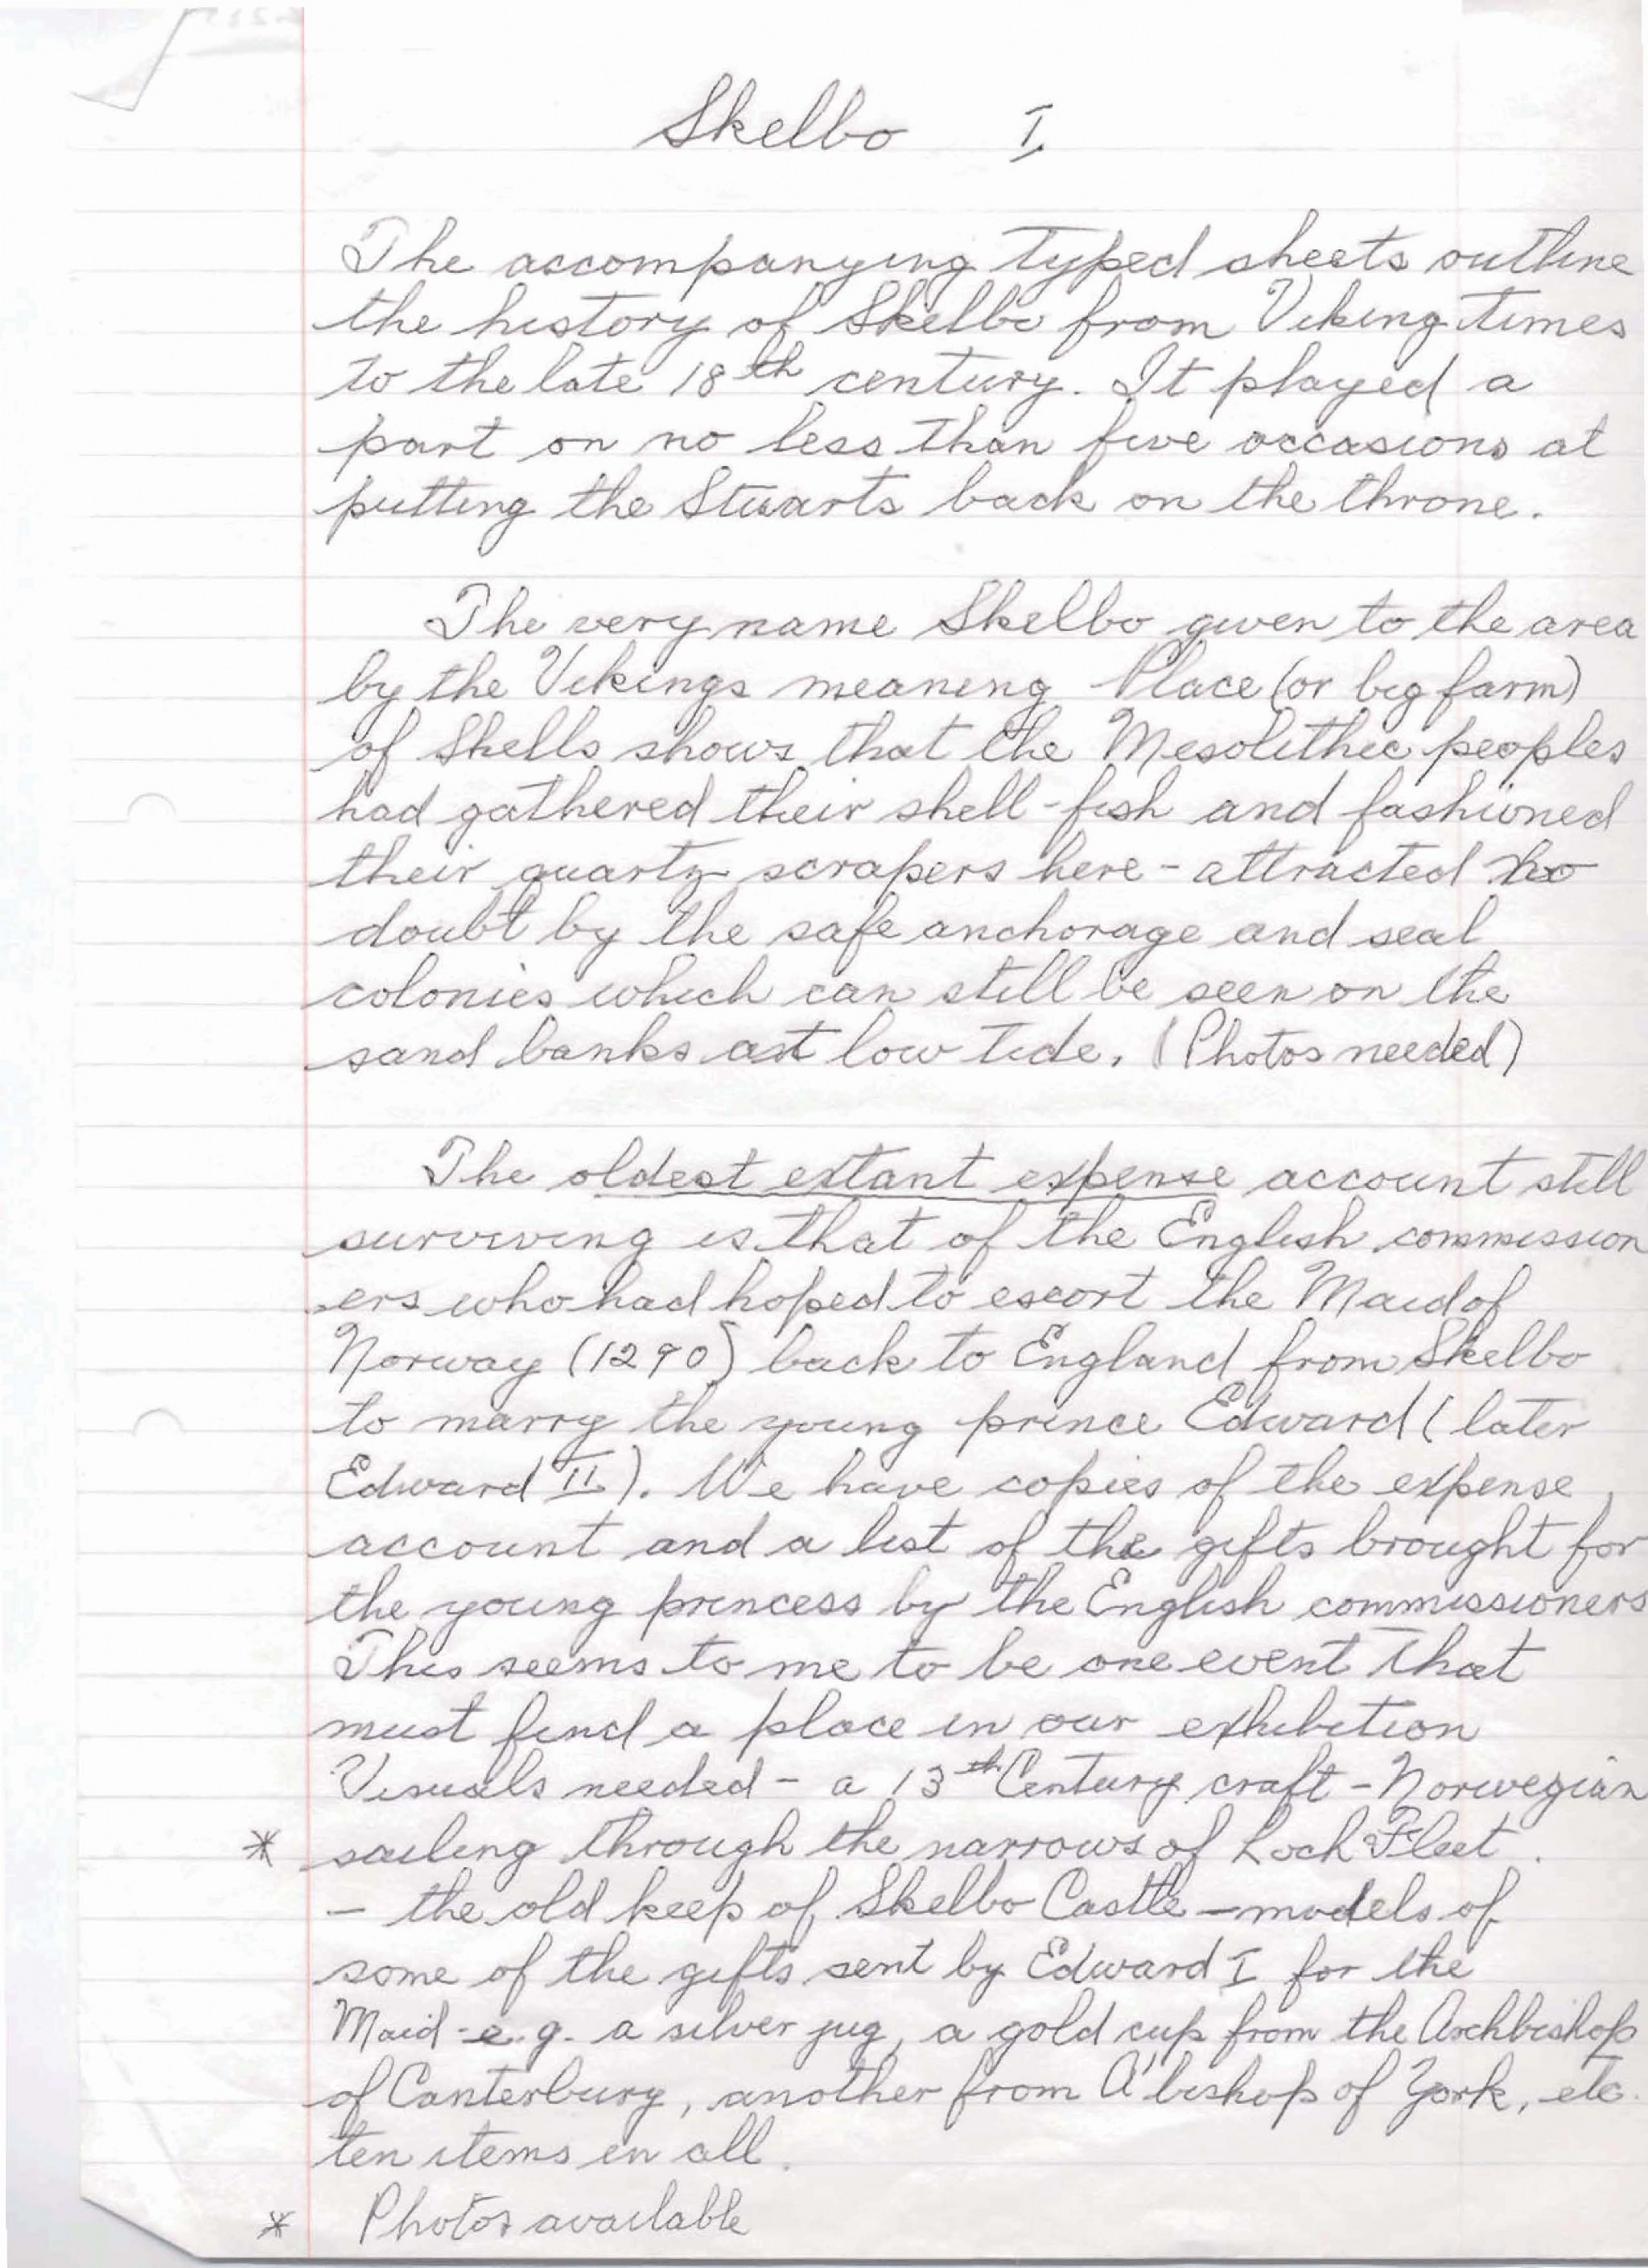 Skelbo I
The accompanying typed sheets outline
the history of Skelbo from Viking times
to the late 18th century. It played a
part on no less than five occasions at
putting the Stuarts back on the throne.
The very name Skelbo given to the area
by the Vikings meaning Place (or big farm)
of Shells shows that the Mesolithic peoples
had gathered their shell-fish and fashioned
their quartz scrapers here - attracted no
doubt by the safe anchorage and seal
colonies which can still be seen on the
sand banks at low tide. (Photos needed)
The oldest extant expense account still
surviving is that of the English commission
-ers who had hoped to escort the Maid of
Norway (1290) back to England from Skelbo
to marry the young prince Edward (later
Edward II). We have copies of the expense
account and a list of the gifts brought for
the young princess by the English commissioners
This seems to me to be one event that
must find a place in our exhibition
Visuals needed - a 13th Century craft - Norwegian
* sailing through the narrows of Loch Fleet.
- the old keep of Skelbo Castle - models of
some of the gifts sent by Edward I for the
Maid - e.g. a silver jug, a gold cup from the Archbishop
of Canterbury, another from A'bishop of York, etc.
ten items in all.
* Photos available